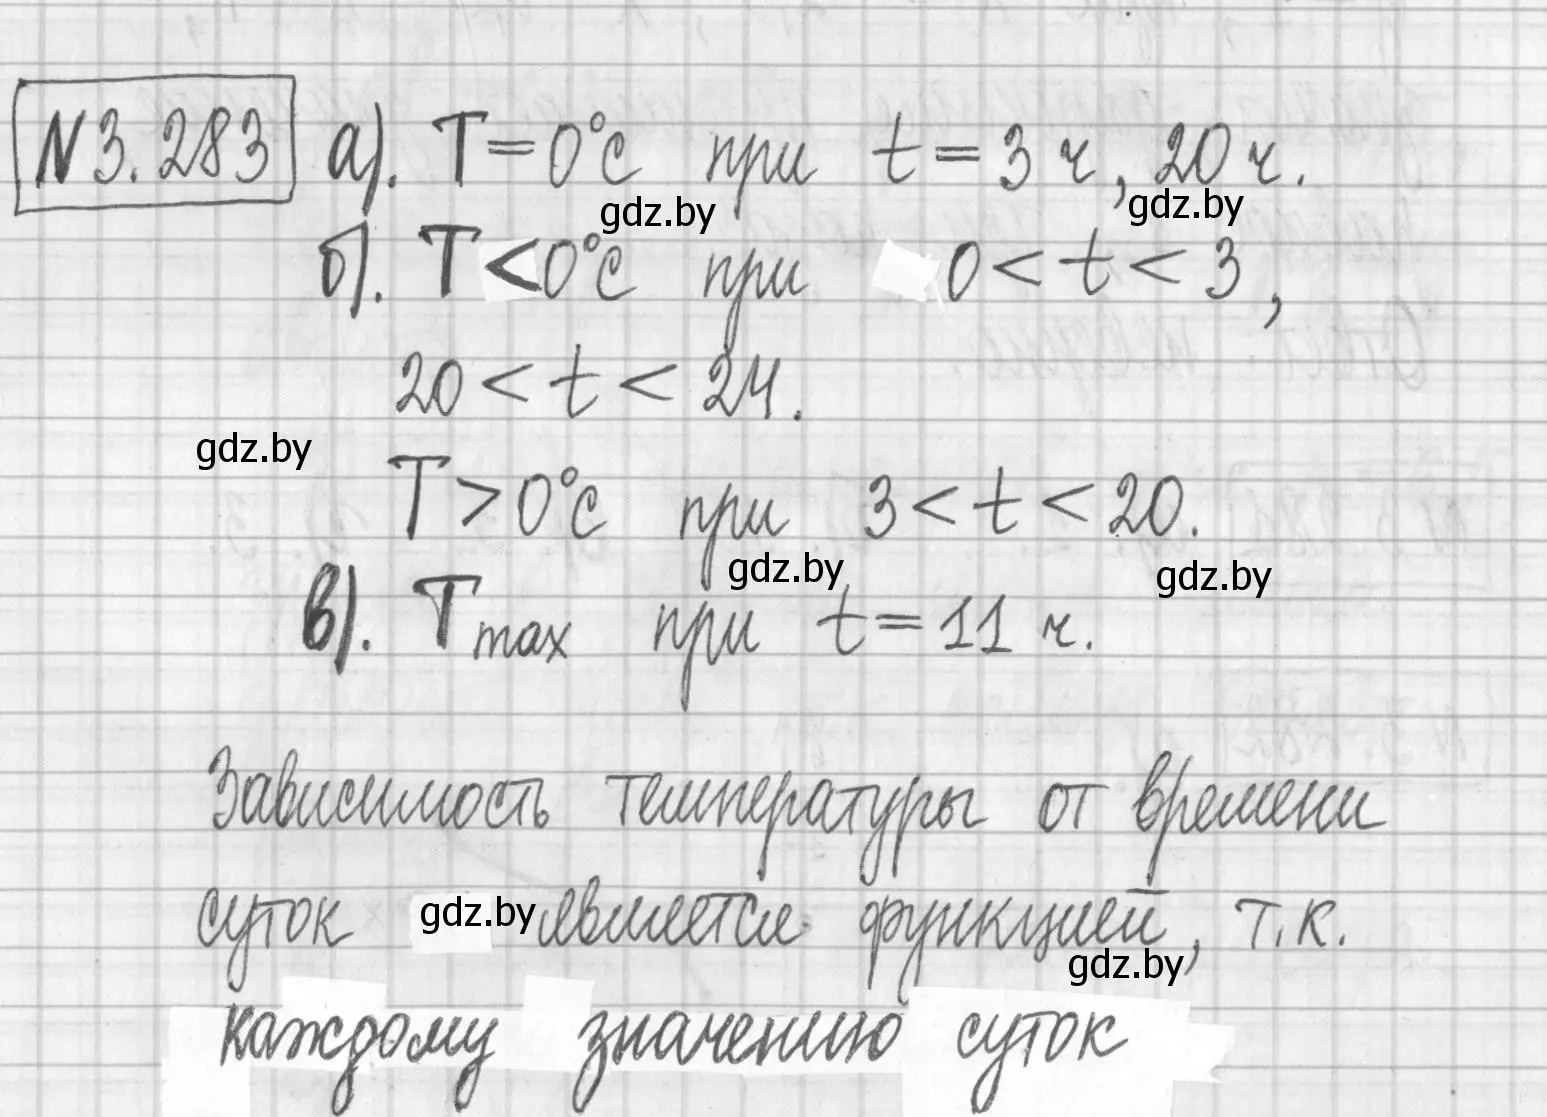 N 3.283 а). T = 0°C при t = 3 ч, 20 ч.
gdz.by gdz.by
б). T < 0°C при 0 < t < 3,
20 < t < 24.
gdz.by
T > 0°C при 3 < t < 20.
gdz.by gdz.by
в). Tmax при t = 11 ч.
Зависимость температуры от времени
суток gdz.by является функцией, т.к.
gdz.by
каждому значению суток